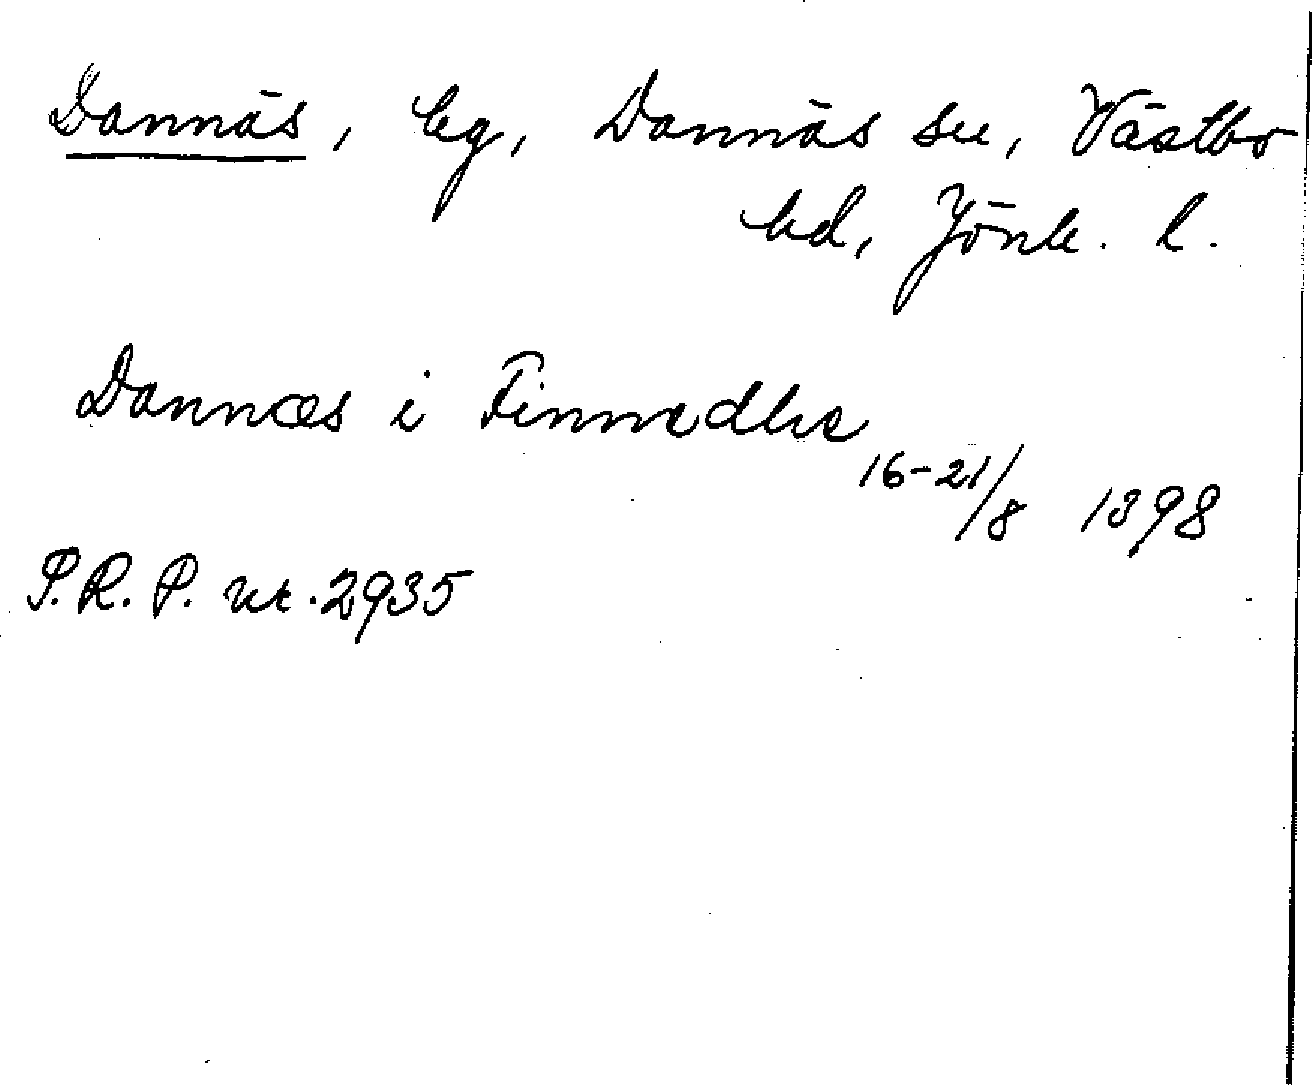 Dannäs, hg, Dannäs sn, Västbo
hd, Jönk. l.
Dannæs i Finnedhe
16-21/8 1398
S.R.P. nr. 2935